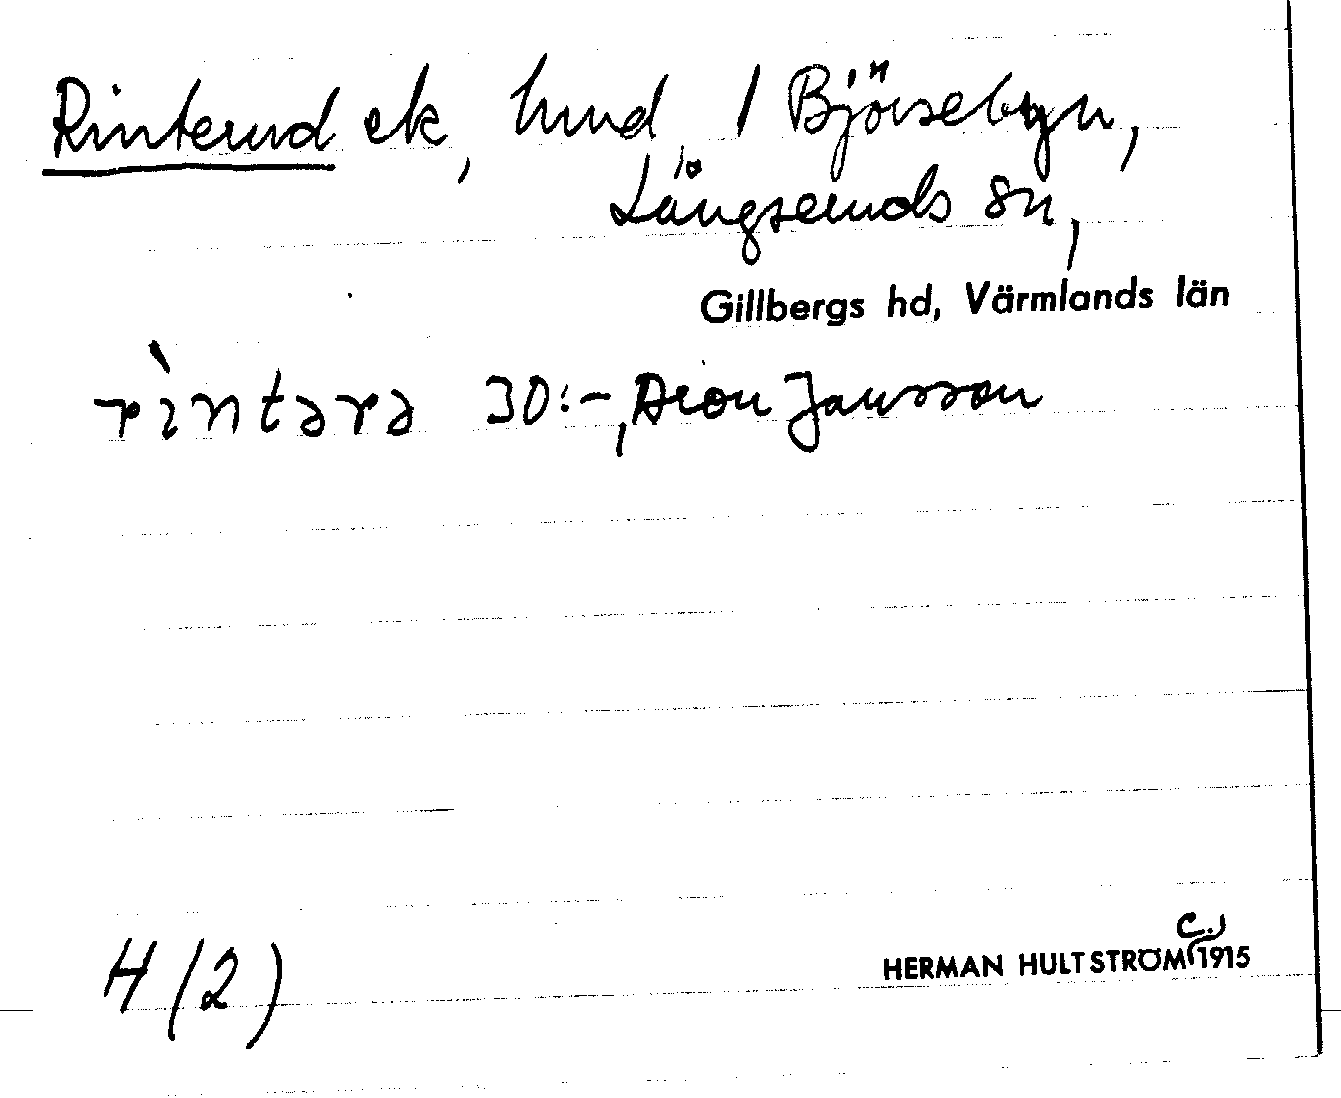 Rinterud ek, hmd / Björsebyn,
Långseruds sn,
Gillbergs hd, Värmlands län
rìntərə 30:-, Aron Jansson
H (2)
HERMAN HULTSTRÖM c. 1915